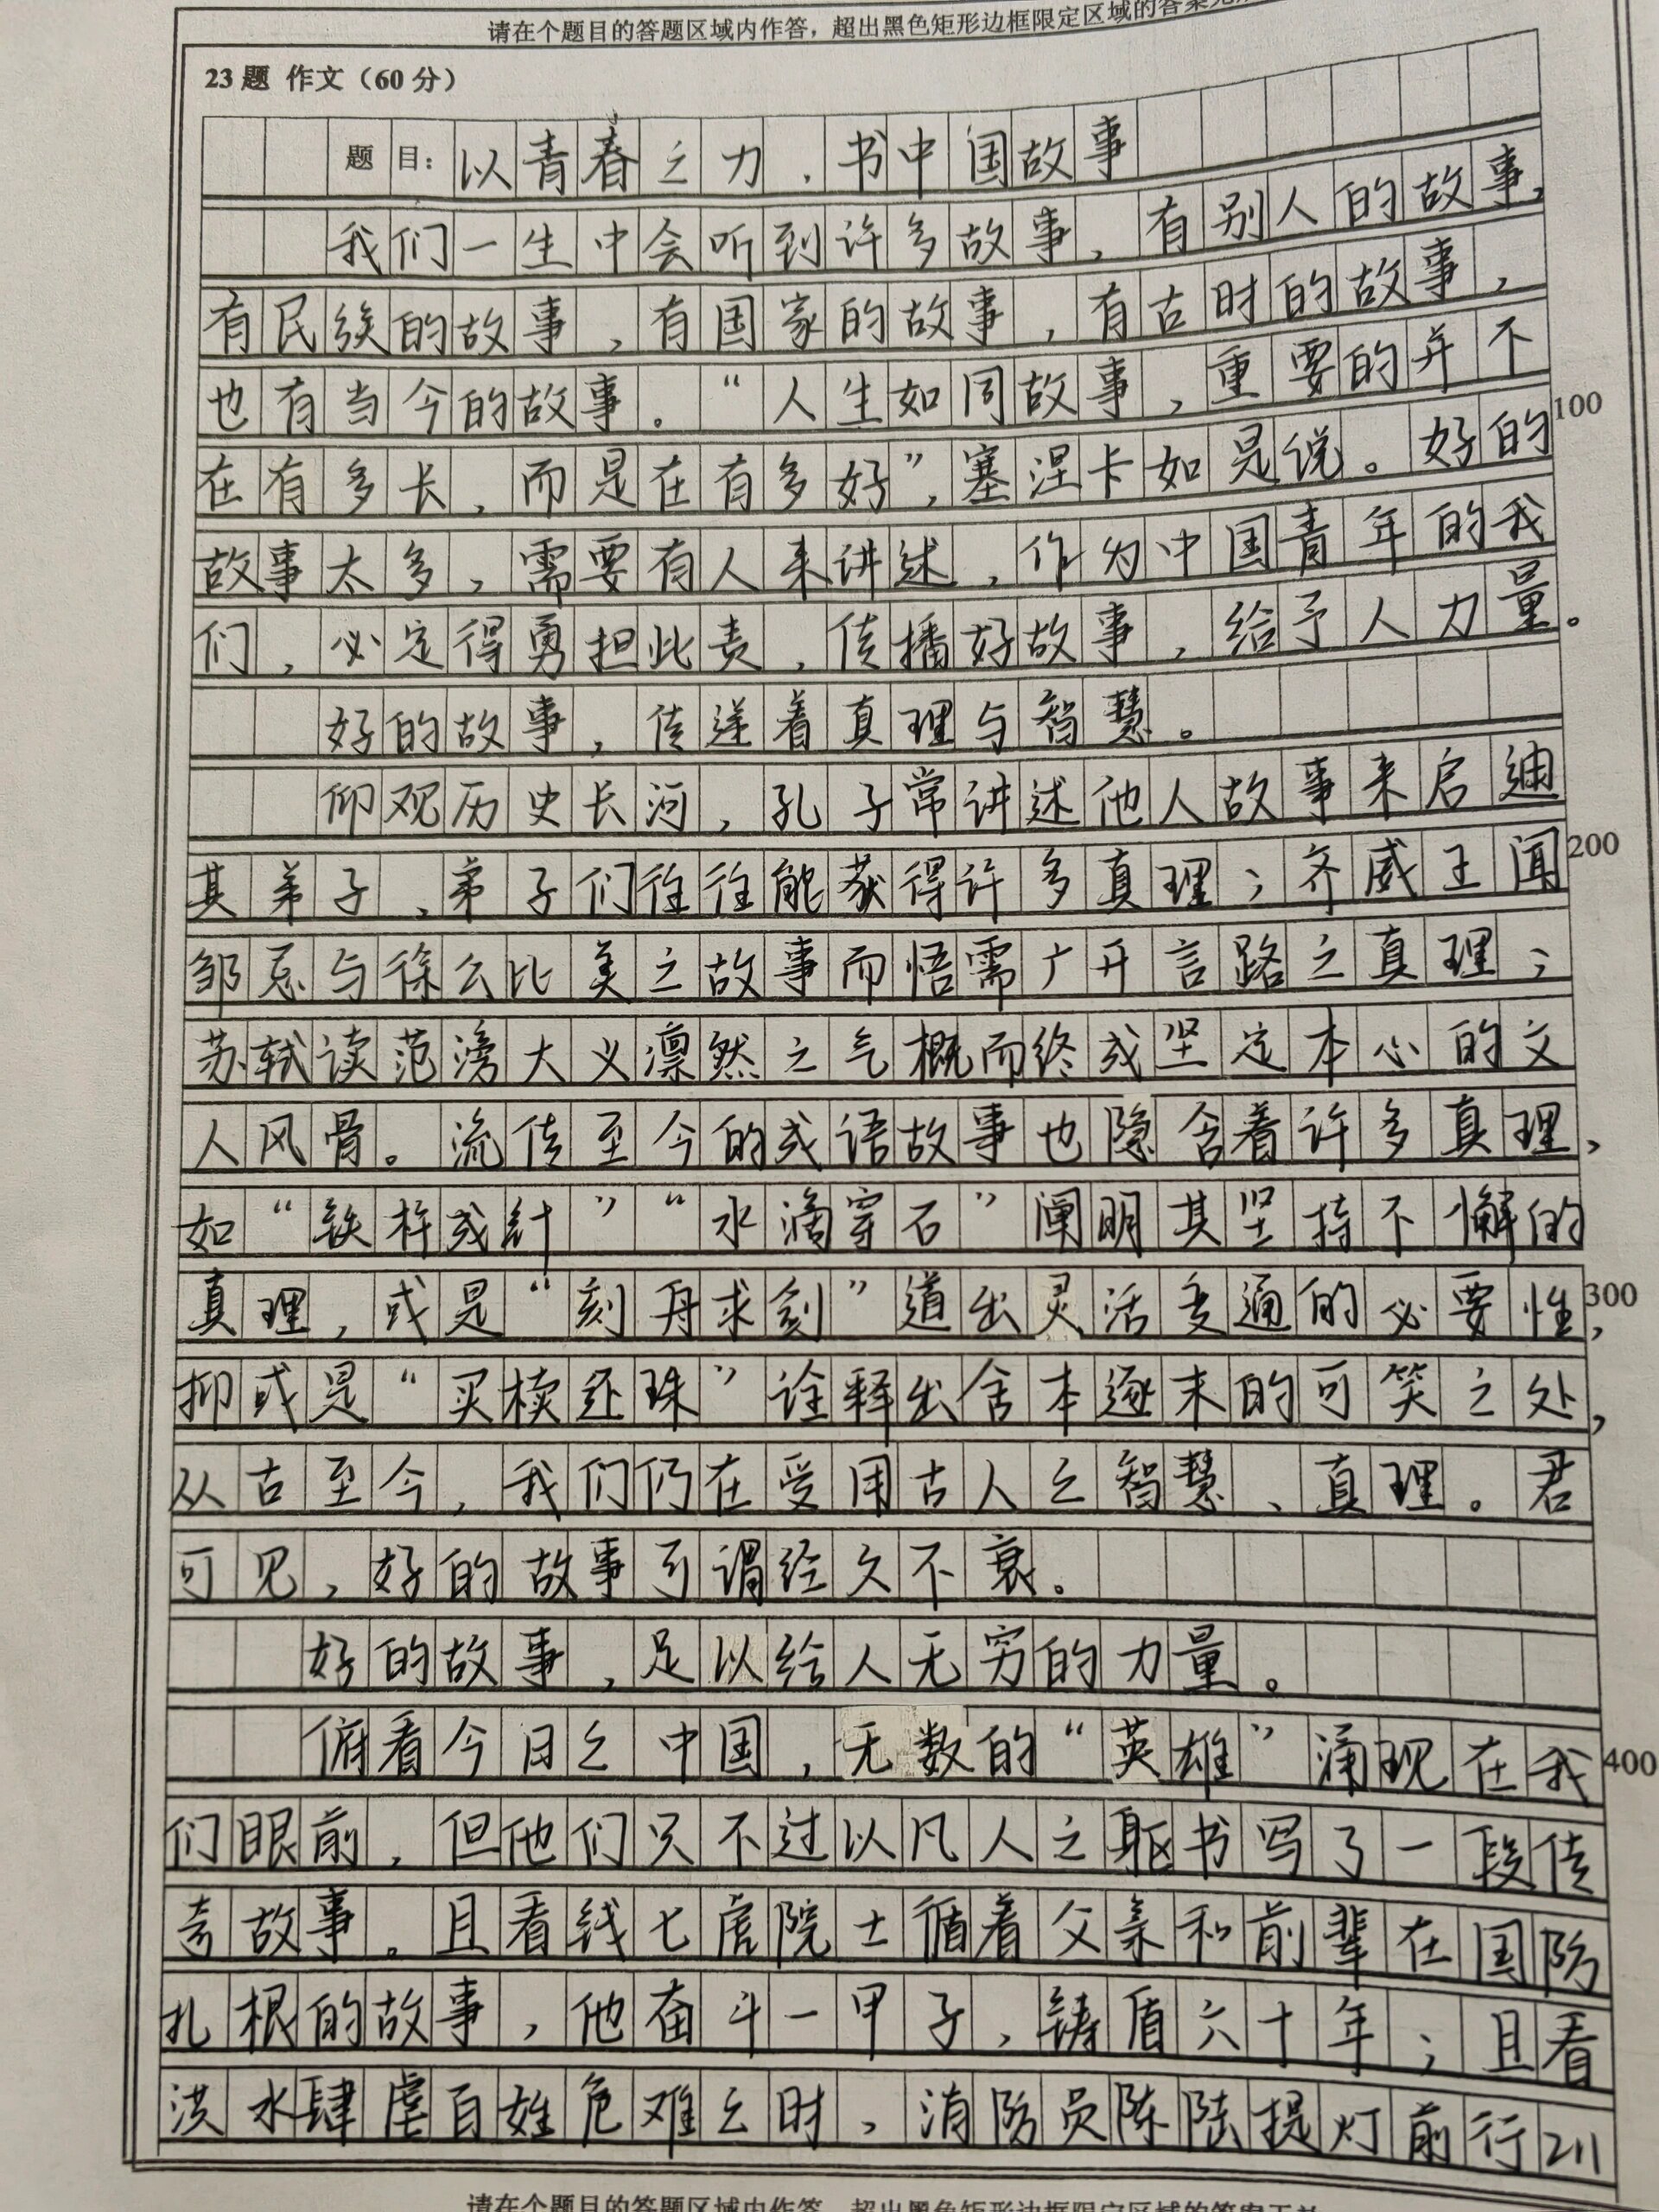 请在个题目的答题区域内作答，超出黑色矩形边框限定区域的答案无
23题 作文（60分）
题目：以青春之力，书中国故事
我们一生中会听到许多故事，有别人的故事，
有民族的故事，有国家的故事，有古时的故事，
也有当今的故事。“人生如同故事，重要的并不
100
在有多长，而是在有多好”，塞涅卡如是说。好的
故事太多，需要有人来讲述，作为中国青年的我
们，必定得勇担此责，传播好故事，给予人力量。
好的故事，传递着真理与智慧。
仰观历史长河，孔子常讲述他人故事来启迪
200
其弟子，弟子们往往能获得许多真理；齐威王闻
邹忌与徐公比美之故事而悟需广开言路之真理；
苏轼读范滂大义凛然之气概而终成坚定本心的文
人风骨。流传至今的成语故事也隐含着许多真理，
如“铁杵成针”“水滴穿石”阐明其坚持不懈的
真理，或是“刻舟求剑”道出灵活变通的必要性，
300
抑或是“买椟还珠”诠释出舍本逐末的可笑之处，
从古至今，我们仍在受用古人之智慧、真理。君
可见，好的故事可谓经久不衰。
好的故事，足以给人无穷的力量。
俯看今日之中国，无数的“英雄”涌现在我
400
们眼前，但他们只不过以凡人之躯书写了一段传
奇故事。且看钱七虎院士循着父亲和前辈在国防
扎根的故事，他奋斗一甲子，铸盾六十年；且看
洪水肆虐百姓危难之时，消防员陈陆提灯前行211
请在个题目的答题区域内作答，超出黑色矩形边框限定区域的答案无效